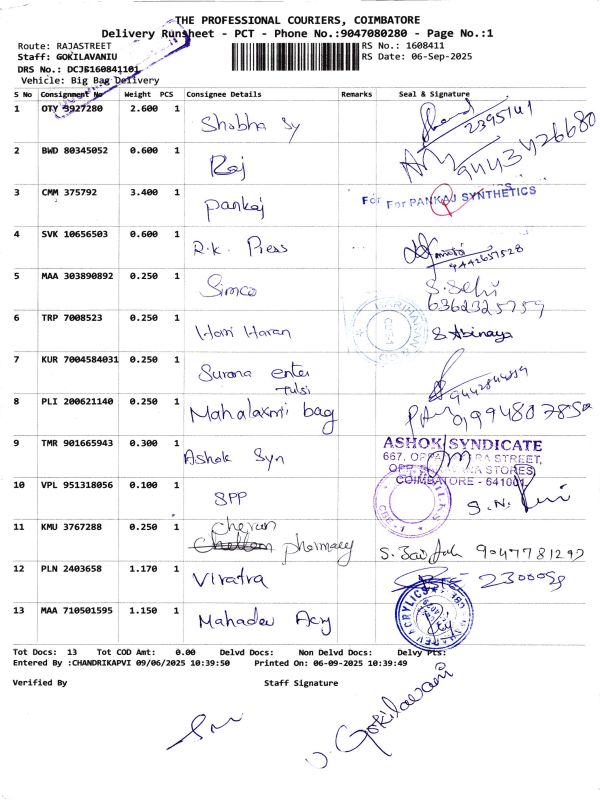 THE PROFESSIONAL COURIERS, COIMBATORE
Delivery Runsheet - PCT - Phone No.:9047080280 - Page No.:1
Route: RAJASTREET
RS No.: 1608411
Staff: GOKILAVANIU
RS Date: 06-Sep-2025
DRS No.: DCJB160841101
Vehicle: Big Bag Delivery
S No Consignment No Weight PCS Consignee Details Remarks Seal & Signature
1 OTY 3927280 2.600 1 Shobha Sy 2395141
2 BWD 80345052 0.600 1 Raj 9443426680
3 CMM 375792 3.400 1 Pankaj For For PANKAJ SYNTHETICS
4 SVK 10656503 0.600 1 R.K. Press
5 MAA 303890892 0.250 1 Simco S. Selvi
6362325759
6 TRP 7008523 0.250 1 Hari Haran S Abinaya
7 KUR 7004584031 0.250 1 Surana enter
Tulsi
8 PLI 200621140 0.250 1 Mahalaxmi bag
9 TMR 901665943 0.300 1 Ashok Syn ASHOK SYNDICATE
STREET,
STORES,
COIMBATORE - 641001.
10 VPL 951318056 0.100 1 SPP S.N.
11 KMU 3767288 0.250 1 Cheran
pharmacy 9047781292
12 PLN 2403658 1.170 1 Viratra
13 MAA 710501595 1.150 1 Mahadev Acry
Tot Docs: 13 Tot COD Amt: 0.00 Delvd Docs: Non Delvd Docs: Delvy Pts:
Entered By :CHANDRIKAPVI 09/06/2025 10:39:50 Printed On: 06-09-2025 10:39:49
Verified By Staff Signature
U. Gokilavani